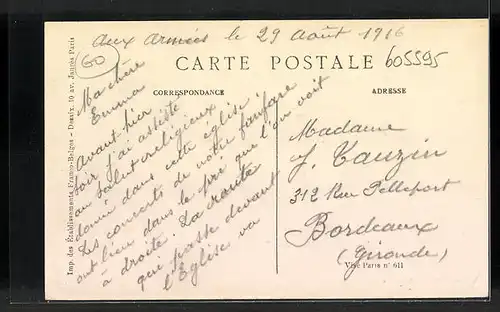 aux armées le 29 août 1916
60
605595
CARTE POSTALE
CORRESPONDANCE
ADRESSE
Ma chère
Emma
avant-hier
soir j'ai assisté
au salut religieux
donné dans cette église.
Les concerts de notre fanfare
ont lieu dans le pré que l'on voit
à droite. La route
qui passe devant
l'Eglise va
Madame
J. Tauzin
312 Rue Pelleport
Bordeaux
(Gironde)
Visé Paris n° 611
Imp. des Etablissements Franco-Belges - Desaix, 10 av. Paris